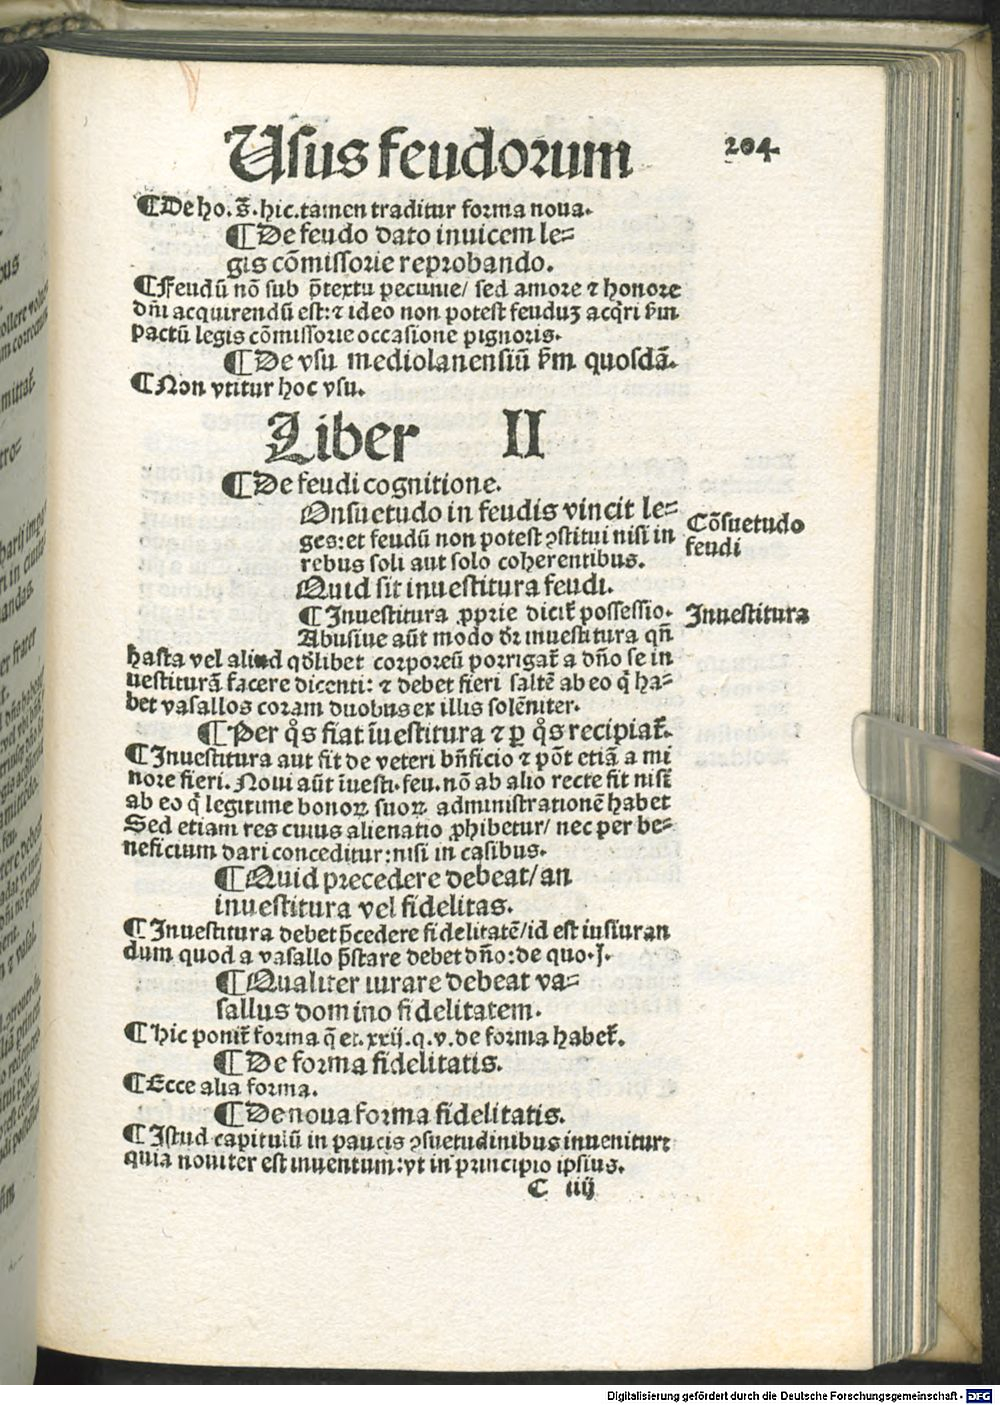 Usus feudorum
204
¶De ho. s̄. hic. tamen traditur forma noua.
¶De feudo dato inuicem le=
gis cõmissorie reprobando.
¶Feudũ nõ sub p̄textu pecunie/ sed amore ⁊ honore
dñi acquirendũ est: ⁊ ideo non potest feuduʒ acq̃ri s̃m
pactũ legis cõmissorie occasione pignoris.
¶De vsu mediolanensiũ s̃m quosdã.
¶Non vtitur hoc vsu.
Liber II
¶De feudi cognitione.
Onsuetudo in feudis vincit le=
ges: et feudũ non potest ꝯstitui nisi in
rebus soli aut solo coherentibus.
Quid sit inuestitura feudi.
¶Inuestitura ꝓprie dicit̃ possessio.
Abusiue aũt modo dr̃ inuestitura qñ
hasta vel aliud qđlibet corporeũ porrigat̃ a dño se in
uestiturã facere dicenti: ⁊ debet fieri saltẽ ab eo q̃ ha=
bet vasallos coram duobus ex illis solẽniter.
Cõsuetudo
feudi
Inuestitura
¶Per q̊s fiat ĩuestitura ⁊ ꝑ q̊s recipiat̃.
¶Inuestitura aut fit de veteri bñficio ⁊ põt etiã a mi
nore fieri. Noui aũt ĩuesti. feu. nõ ab alio recte fit nisi
ab eo q̃ legitime bonoꝝ suoꝝ administrationẽ habet
Sed etiam res cuius alienatio ꝓhibetur/ nec per be=
neficium dari conceditur: nisi in casibus.
¶Quid precedere debeat/ an
inuestitura vel fidelitas.
¶Inuestitura debet p̄cedere fidelitatẽ/ id est iusiuran
dum quod a vasallo p̄stare debet dño: de quo. j.
¶Qualiter iurare debeat va=
sallus domino fidelitatem.
¶Hic ponit̃ forma q̃ et. xxij. q. v. de forma habet̃.
¶De forma fidelitatis.
¶Ecce alia forma.
¶De noua forma fidelitatis.
¶Istud capitulũ in paucis ꝯsuetudinibus inuenitur:
quia nouiter est inuentum: vt in principio ipsius.
C iiij
Digitalisierung gefördert durch die Deutsche Forschungsgemeinschaft - DFG